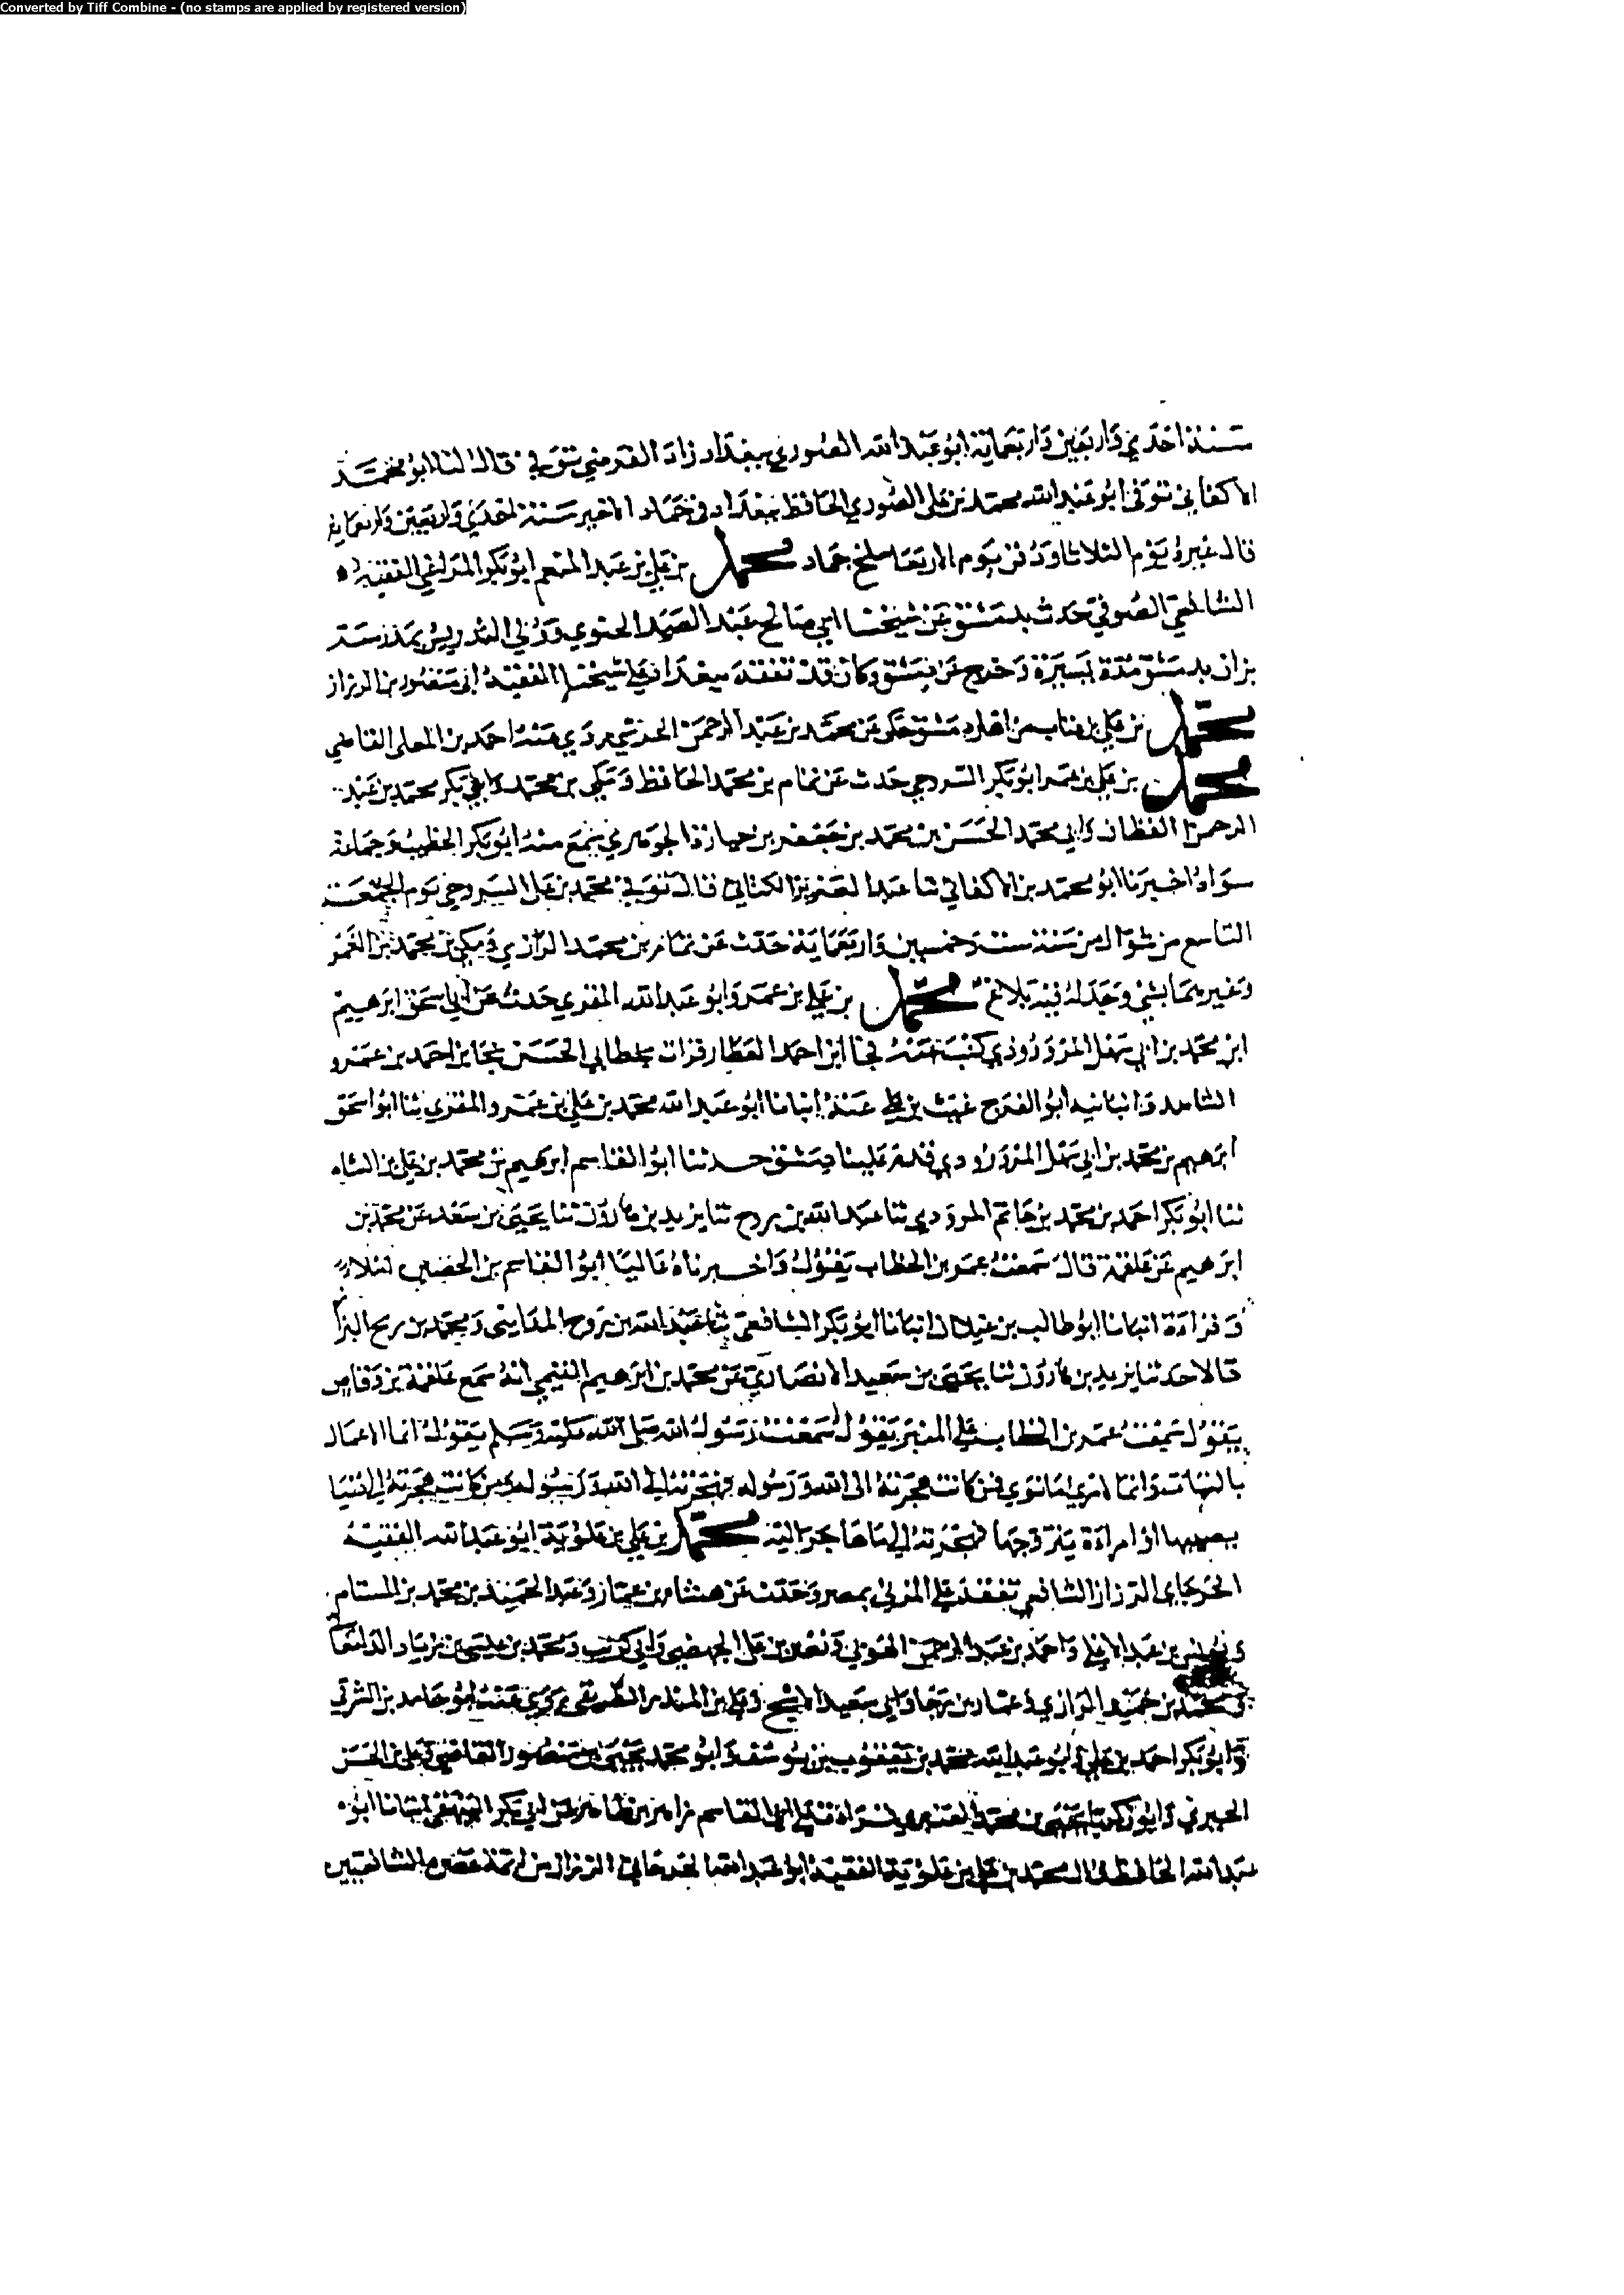 Converted by Tiff Combine - (no stamps are applied by registered version)
سنة احدى واربعين واربعماية ابو عبد الله الصوري ببغداد زاد القرمني توفي قال لنا ابو محمد
الاكفاني توفى ابو عبد الله محمد بن علي الصوري الحافظ ببغداد في جماد الاخير سنة احدى واربعين واربعماية
قال غيره يوم الثلاثا ودفن يوم الاربعا سلخ جماد محمد بن علي بن عبد المنعم ابو بكر المراغي الفقيه
الشافعي الصوفي حدث بدمشق عن شيخنا ابي صالح عبد الصمد الحنوي وولي التدريس بمدرسة
بزان بدمشق مدة يسيرة وخرج عن دمشق وكان قد تفقه ببغداد على شيخنا الفقيه ابي منصور بن الرزاز
محمد بن علي بن من اهل دمشق حكى عن محمد بن عبد الرحمن روى عنه احمد بن المعلى القاضي
محمد بن علي بن عمر ابو بكر السروجي حدث عن تمام بن محمد الحافظ ومكي بن محمد وابي بكر محمد بن عبد
الرحمن القطان وابي محمد الحسن بن محمد بن جعفر بن الجوهري سمع منه ابو بكر الخطيب وجماعة
سواه اخبرنا ابو محمد بن الاكفاني ثنا عبد العزيز الكتاني قال توفي محمد بن علي السروجي يوم الجمعة
التاسع من شوال من سنة ست وخمسين واربعماية حدث عن تمام بن محمد الرازي ومكي بن محمد بن الغمر
وغيرهما بشئ وجد له فيه بلاغ محمد بن علي بن عمرو ابو عبد الله المقري حدث عن ابي اسحق ابرهيم
ابن محمد بن ابي سهل المروروذي كتب عنه نجا ابن احمد العطار قرات بخط ابي الحسن نجا بن احمد بن عمرو
الشاهد وانبانيه ابو الفرج غيث بن علي عنه انبانا ابو عبد الله محمد بن علي بن عمرو المقري ثنا ابو اسحق
ابرهيم بن محمد بن ابي سهل المرورودي قدم علينا دمشق حدثنا ابو القاسم ابرهيم بن محمد بن علي بن الشاه
ثنا ابو بكر احمد بن محمد بن حاتم المرودي ثنا عبد الله بن روح ثنا يزيد بن هارون ثنا يحيى بن سعد عن محمد بن
ابرهيم عن علقمة قال سمعت عمر بن الخطاب يقول واخبرناه عاليا ابو القاسم بن الحصين املا
وقراءة انبانا ابو طالب بن غيلان انبانا ابو بكر الشافعي ثنا عبد الله بن روح المدايني ومحمد بن ربح البزاز
قالا حدثنا يزيد بن هارون ثنا يحيى بن سعيد الانصاري عن محمد بن ابرهيم التيمي انه سمع علقمة بن وقاص
يقول سمعت عمر بن الخطاب على المنبر يقول سمعت رسول الله صلى الله عليه وسلم يقول انما الاعمال
بالنيات وانما لامرئ ما نوى فمن كانت هجرته الى الله ورسوله فهجرته الى الله ورسوله ومن كانت هجرته الى دنيا
يصيبها او امراة يتزوجها فهجرته الى ما هاجر اليه محمد بن علي بن علوية ابو عبد الله الفقيه
الجرجاني الرزاز الشافعي تفقه على المزني بمصر وحدث عن هشام بن عمار وعبد الحميد بن محمد بن المستام
ويونس بن عبد الاعلى واحمد بن عبد الرحمن ونصر بن علي الجهضمي وابي كريب ومحمد بن عيسى بن زياد الدامغاني
ومحمد بن حميد الرازي وعمار بن رجا وابي سعيد الاشج وعلي بن المنذر الطريقي روى عنه ابو حامد بن الشرقي
وابو بكر احمد بن علي وابو عبد الله محمد بن يعقوب بن يوسف وابو محمد يحيى بن منصور القاضي وعلي بن الحسن
الحيري وابو زكريا يحيى بن محمد العنبري قراة على ابي القاسم زاهر بن طاهر عن ابي بكر البيهقي انبانا ابو
عبد الله الحافظ قال محمد بن علي بن علوية الفقيه ابو عبد الله الجرجاني الرزاز من ايمة عصره للشافعيين